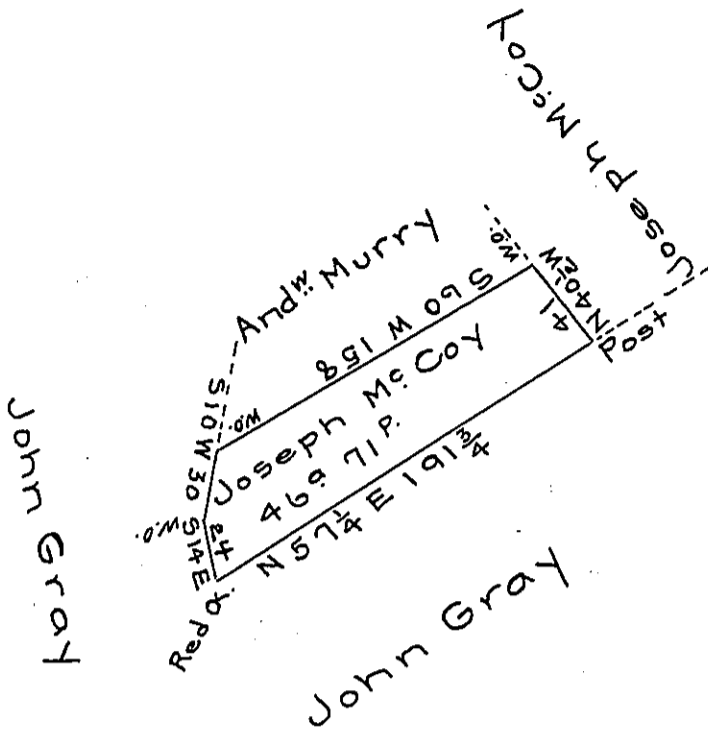 Joseph McCoy
Andw. Murry
W.O.
N 40½ W
41
Post
S 60 W 158
W.O.
S 10 W 30
Joseph McCoy
46a 71 P.
W.O.
S 14 E
24
N 57¼ E 191¾
Red O.
John Gray
John Gray